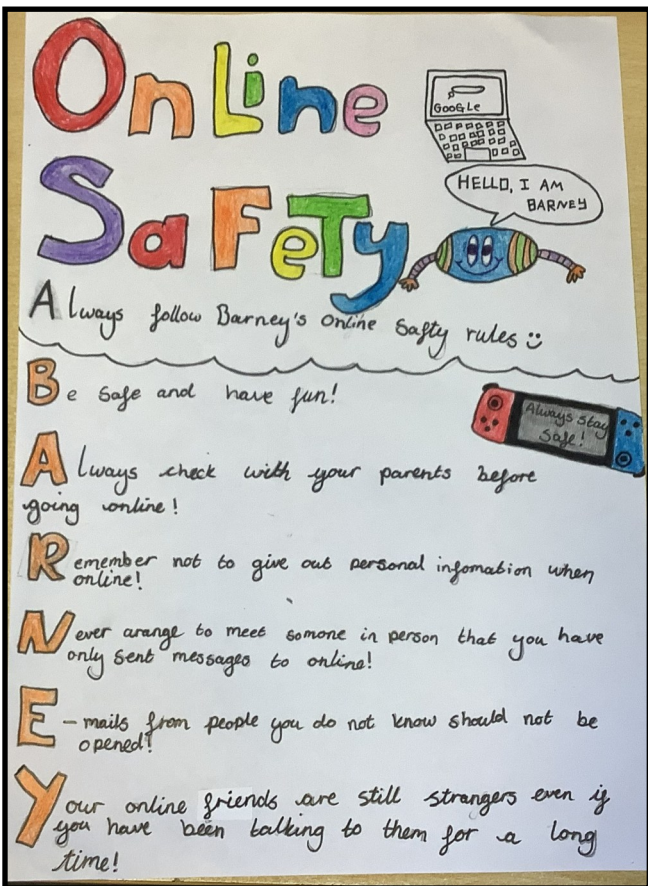 OnLine
GOOGLE
HELLO, I AM
BARNEY
SaFeTy
Always follow Barney's online Safty rules
Be safe and have fun!
Always stay
Safe!
Always check with your parents before
going online!
Remember not to give out personal infomation when
online!
Never arange to meet somone in person that you have
only sent messages to online!
E-mails from people you do not know should not be
opened!
Your online friends are still strangers even if
you have been talking to them for a long
time!